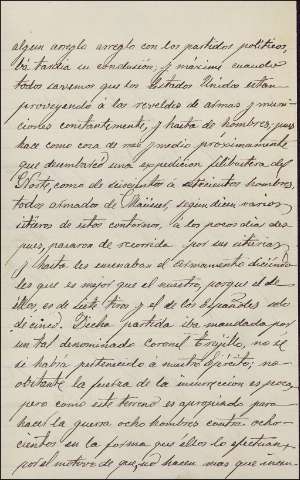 algun arreglo arreglo con los partidos politicos,
tardia su conclusión; y máxime cuando
todos savemos que los Estados Unidos estan
proveyendo á los reveldes de armas y muni-
ciones constantemente, y hasta de hombres, pues
hace como cosa de mes y medio proximamente
que desembarco una expedicion filibustera del
Norte, como de seiscientos á setecientos hombres,
todos armados de Maüser, segun dicen varios
de estos contornos, á los pocos dias des
pues, pasaron de recorrida por sus
y hasta les enseñaban el armamento diciendo
les que es mejor que el nuestro, porque el de
ellos, es de siete tiros y el de los Españoles solo
de cinco. Dicha partida iba mandada por
un tal denominado Coronel Trujillo, no se
si habrá pertenecido á nuestro Ejército; no
obstante la fuerza de la insurrección es poca,
pero como este terreno es apropiado para
hacer la guerra ocho hombres contra ocho-
cientos en la forma que ellos lo efectuan
por el motivo de que no hacen mas que